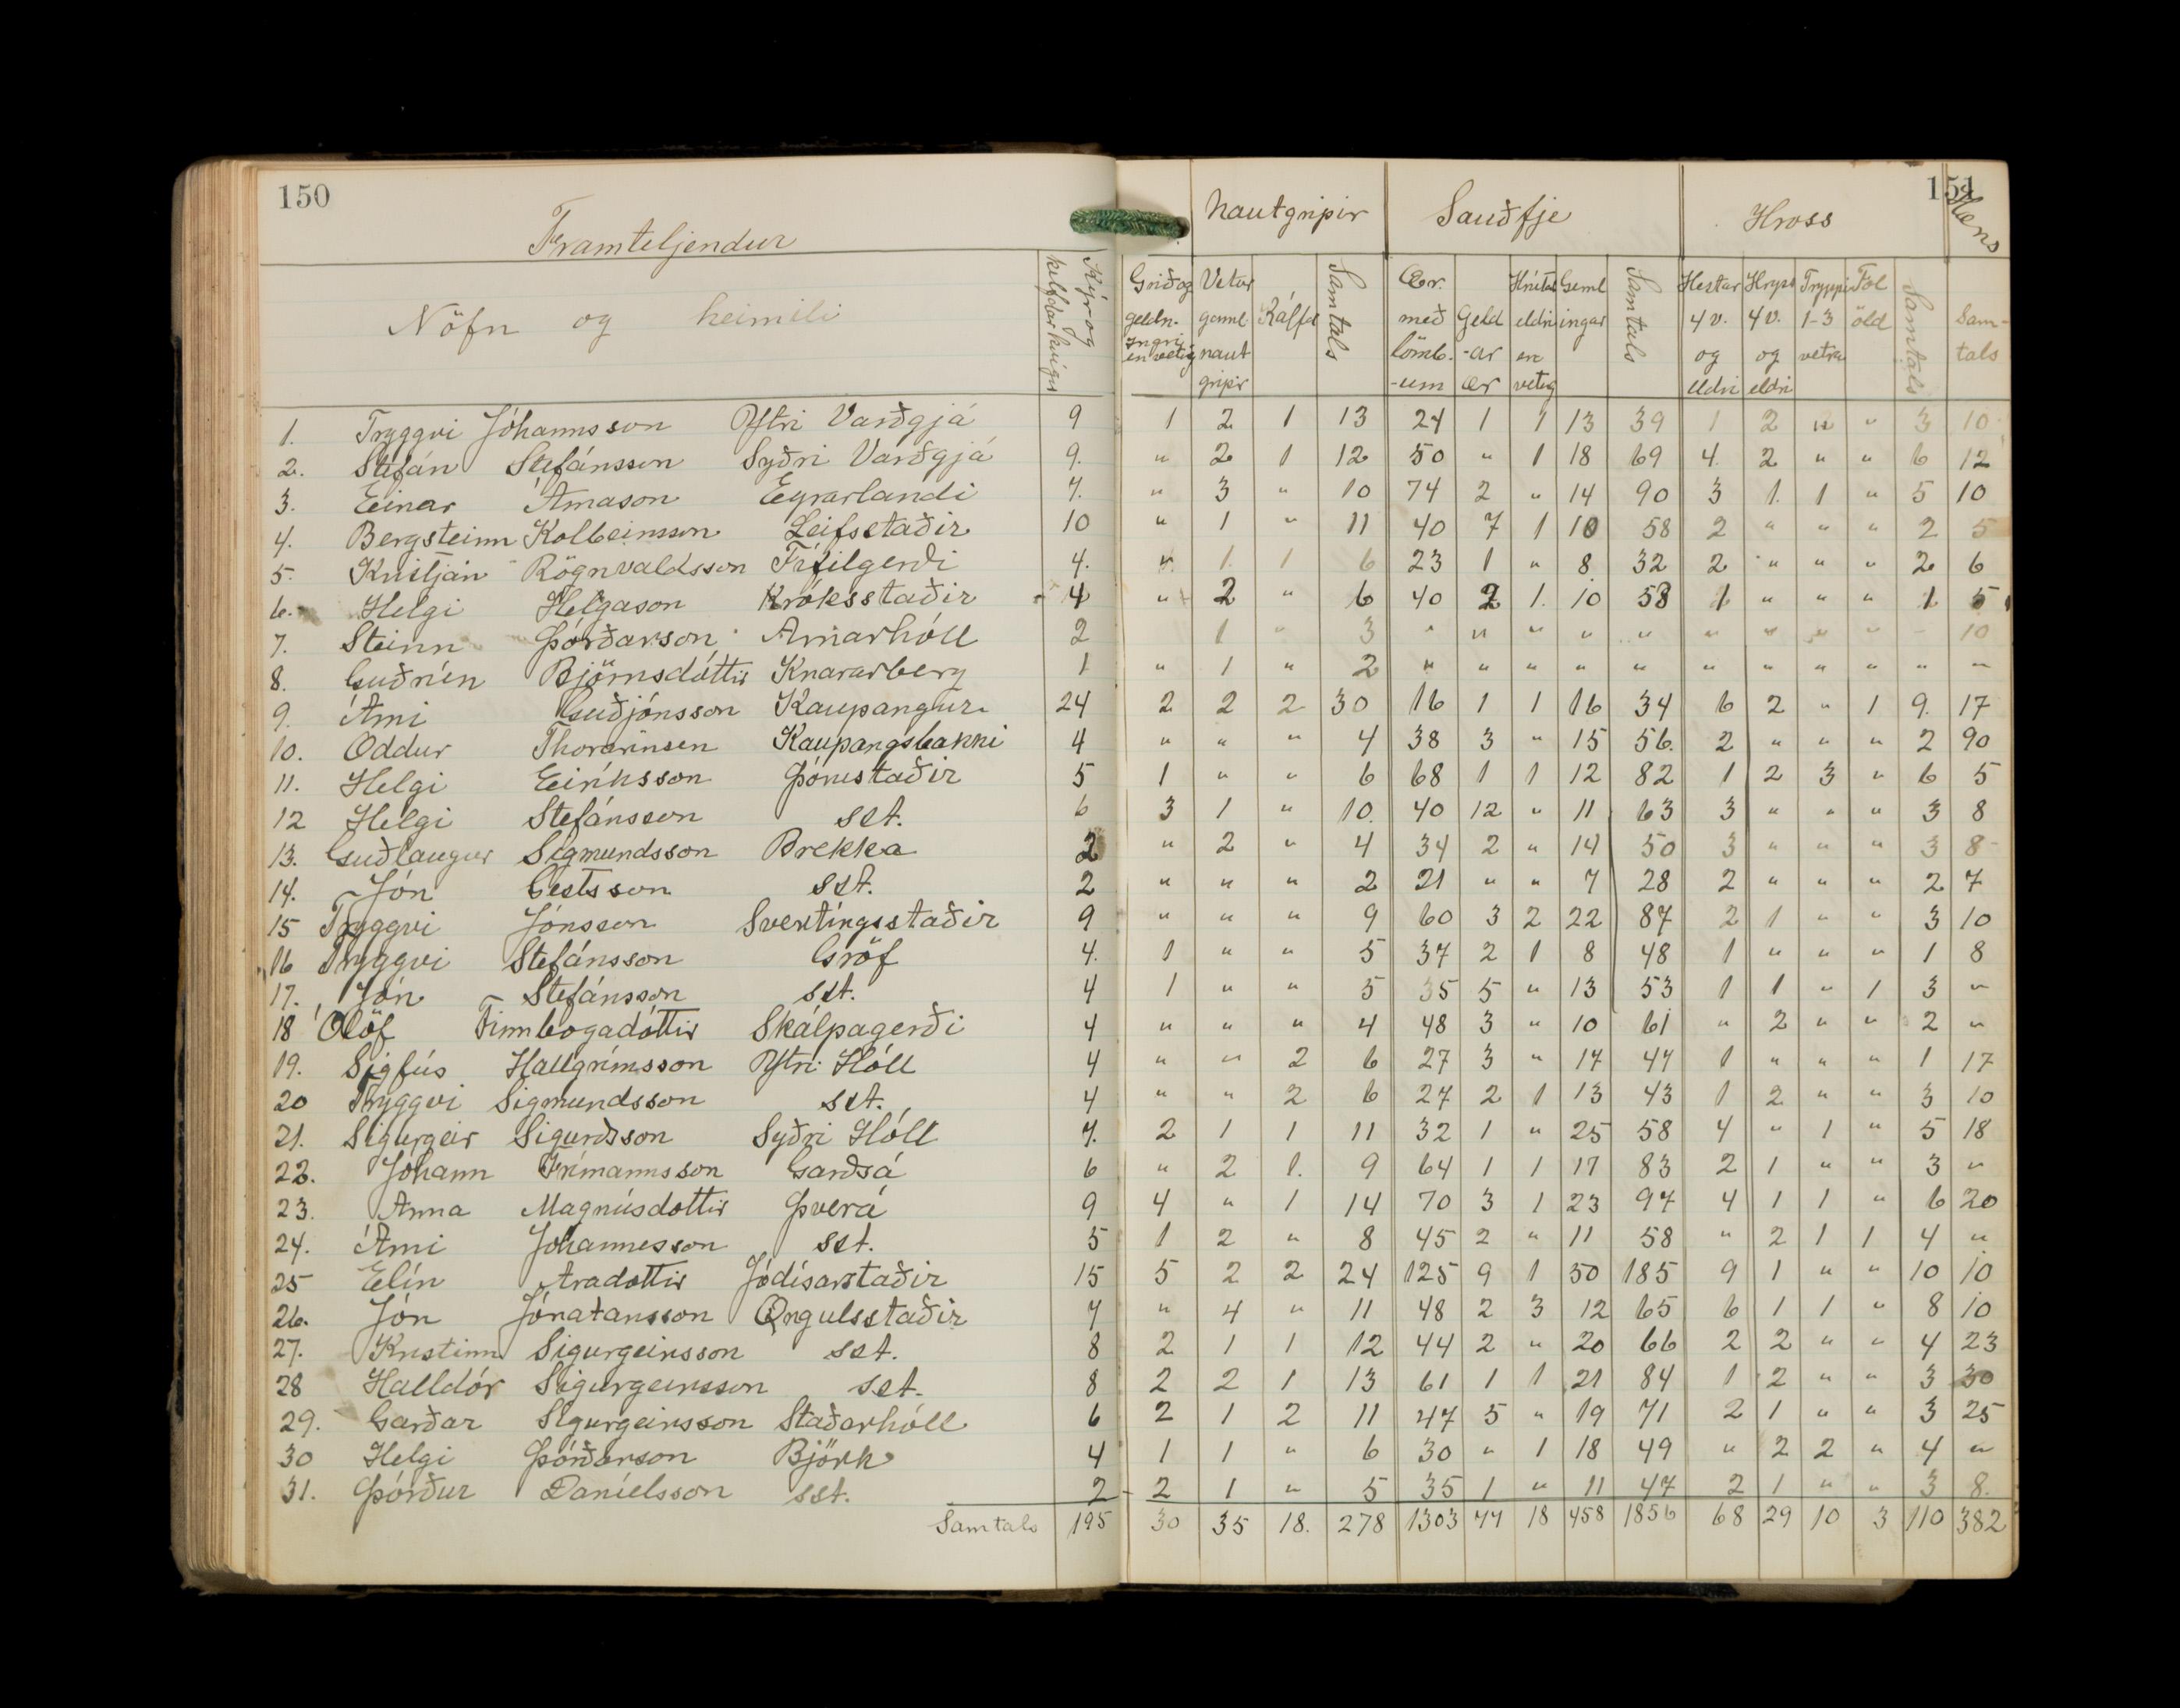 150
151
Framteljendur
Nautgripir
Sauðfje
Hross
Hæns
Nöfn og heimili
Kýr og kelfdar kvígur
Griðog geldn. Yngri en vetrg
Vetur gaml naut gripir
Kálfar
Samtals
Ær. með lömb. -um
Geld -ar ær
Hrútar eldri en vetrg
Geml ingar
Samtals
Hestar 4 v. og eldri
Hryss 4 v. og eldri
Tryppi 1-3 vetra
Fol öld
Samtals
Sam- tals
1. Tryggvi Jóhannsson Ytri Varðgjá 9 1 2 1 13 24 1 1 13 39 1 2 " " 3 10
2. Stefán Stefánsson Syðri Varðgjá 9. " 2 1 12 50 " 1 18 69 4. 2 " " 6 12
3. Einar Árnason Eyrarlandi 7. " 3 " 10 74 2 " 14 90 3 1. 1 " 5 10
4. Bergsteinn Kolbeinsson Leifsstaðir 10 " 1 " 11 40 7 1 10 58 2 " " " 2 5
5. Kristján Rögnvaldsson Fífilgerði 4. " 1. 1 6 23 1 " 8 32 2 " " " 2 6
6. Helgi Helgason Króksstaðir 4 " 2 " 6 40 2 1. 10 53 1 " " " 1 5
7. Steinn Þórðarson Arnarhóll 2 1 " 3 " " " " " " " " " - 10
8. Guðrún Björnsdóttir Knararberg 1 " 1 " 2 " " " " " " " " " " "
9. Árni Guðjónsson Kaupangur. 24 2 2 2 30 16 1 1 16 34 6 2 " 1 9. 17
10. Oddur Thorarinsen Kaupangsbakki 4 " " " 4 38 3 " 15 56. 2 " " " 2 90
11. Helgi Eiríksson Þórustaðir 5 1 " " 6 68 1 1 12 82 1 2 3 " 6 5
12 Helgi Stefánsson sst. 6 3 1 " 10. 40 12 " 11 63 3 " " " 3 8
13. Guðlaugur Sigmundsson Brekka 2 " 2 " 4 34 2 " 14 50 3 " " " 3 8
14. Jón Gestsson sst. 2 " " " 2 21 " " 7 28 2 " " " 2 7
15 Tryggvi Jónsson Svertingsstaðir 9 " " " 9 60 3 2 22 87 2 1 " " 3 10
16 Tryggvi Stefánsson Gröf 4. 1 " " 5 37 2 1 8 48 1 " " " 1 8
17. Jón Stefánsson sst. 4 1 " " 5 35 5 " 13 53 1 1 " 1 3 "
18 Ólöf Finnbogadóttir Skálpagerði 4 " " " 4 48 3 " 10 61 " 2 " " 2 "
19. Sigfús Hallgrímsson Ytri Hóll 4 " " 2 6 27 3 " 14 44 1 " " " 1 17
20 Tryggvi Sigmundsson sst. 4 " " 2 6 27 2 1 13 43 1 2 " " 3 10
21. Sigurgeir Sigurðsson Syðri Hóll 7. 2 1 1 11 32 1 " 25 58 4 " 1 " 5 18
22. Jóhann Frímannsson Garðsá 6 " 2 1. 9 64 1 1 17 83 2 1 " " 3 "
23. Anna Magnúsdottir Þverá 9 4 " 1 14 70 3 1 23 97 4 1 1 " 6 20
24. Árni Jóhannesson sst. 5 1 2 " 8 45 2 " 11 58 " 2 1 1 4 "
25 Elín Aradottir Jódísarstaðir 15 5 2 2 24 125 9 1 50 185 9 1 " " 10 10
26. Jón Jónatansson Öngulsstaðir 7 " 4 " 11 48 2 3 12 65 6 1 1 " 8 10
27. Kristinn Sigurgeirsson sst. 8 2 1 1 12 44 2 " 20 66 2 2 " " 4 23
28 Halldór Sigurgeirsson sst. 8 2 2 1 13 61 1 1 21 84 1 2 " " 3 30
29. Garðar Sigurgeirsson Staðarhóll 6 2 1 2 11 47 5 " 19 71 2 1 " " 3 25
30 Helgi Þórðarson Björk 4 1 1 " 6 30 " 1 18 49 " 2 2 " 4 "
31. Þórður Daníelsson sst. 2 2 1 " 5 35 1 " 11 47 2 1 " " 3 8.
Samtals 195 30 35 18. 278 1303 77 18 458 1856 68 29 10 3 110 382